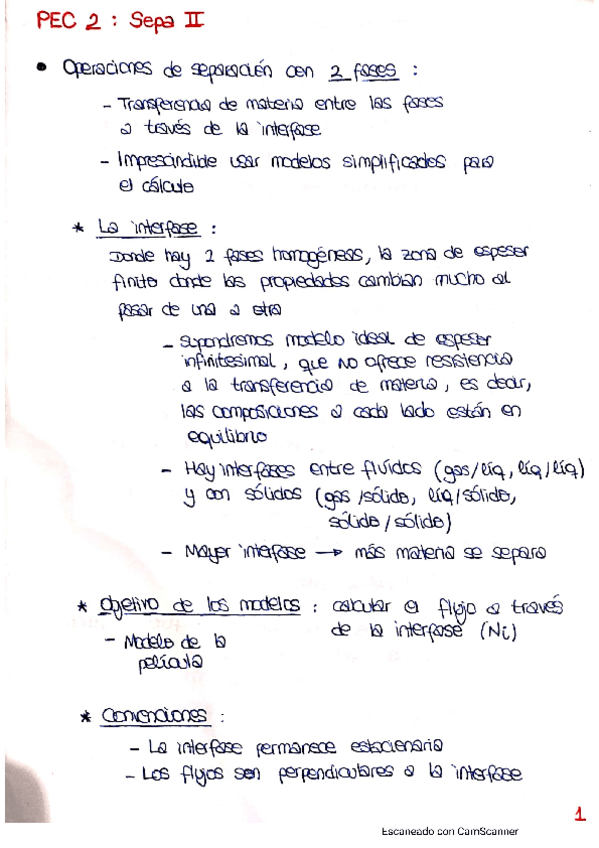 PEC 2 : Sepa II
• Operaciones de separación con 2 fases :
- Transferencia de materia entre las fases
a través de la interfase
- Imprescindible usar modelos simplificados para
el cálculo
* La interfase :
Donde hay 2 fases homogéneas, la zona de espesor
finito donde las propiedades cambian mucho al
pasar de una a otra
- Supondremos modelo ideal de espesor
infinitesimal, que NO ofrece resistencia
a la transferencia de materia, es decir,
las composiciones a cada lado están en
equilibrio
- Hay interfases entre fluidos (gas/líq, líq/líq)
y con sólidos (gas/sólido, líq/sólido,
sólido/sólido)
- Mayor interfase → más materia se separa
* Objetivo de los modelos : calcular el flujo a través
de la interfase (Ni)
- Modelo de la
película
* Convenciones :
- La interfase permanece estacionaria
- Los flujos son perpendiculares a la interfase
1
Escaneado con CamScanner